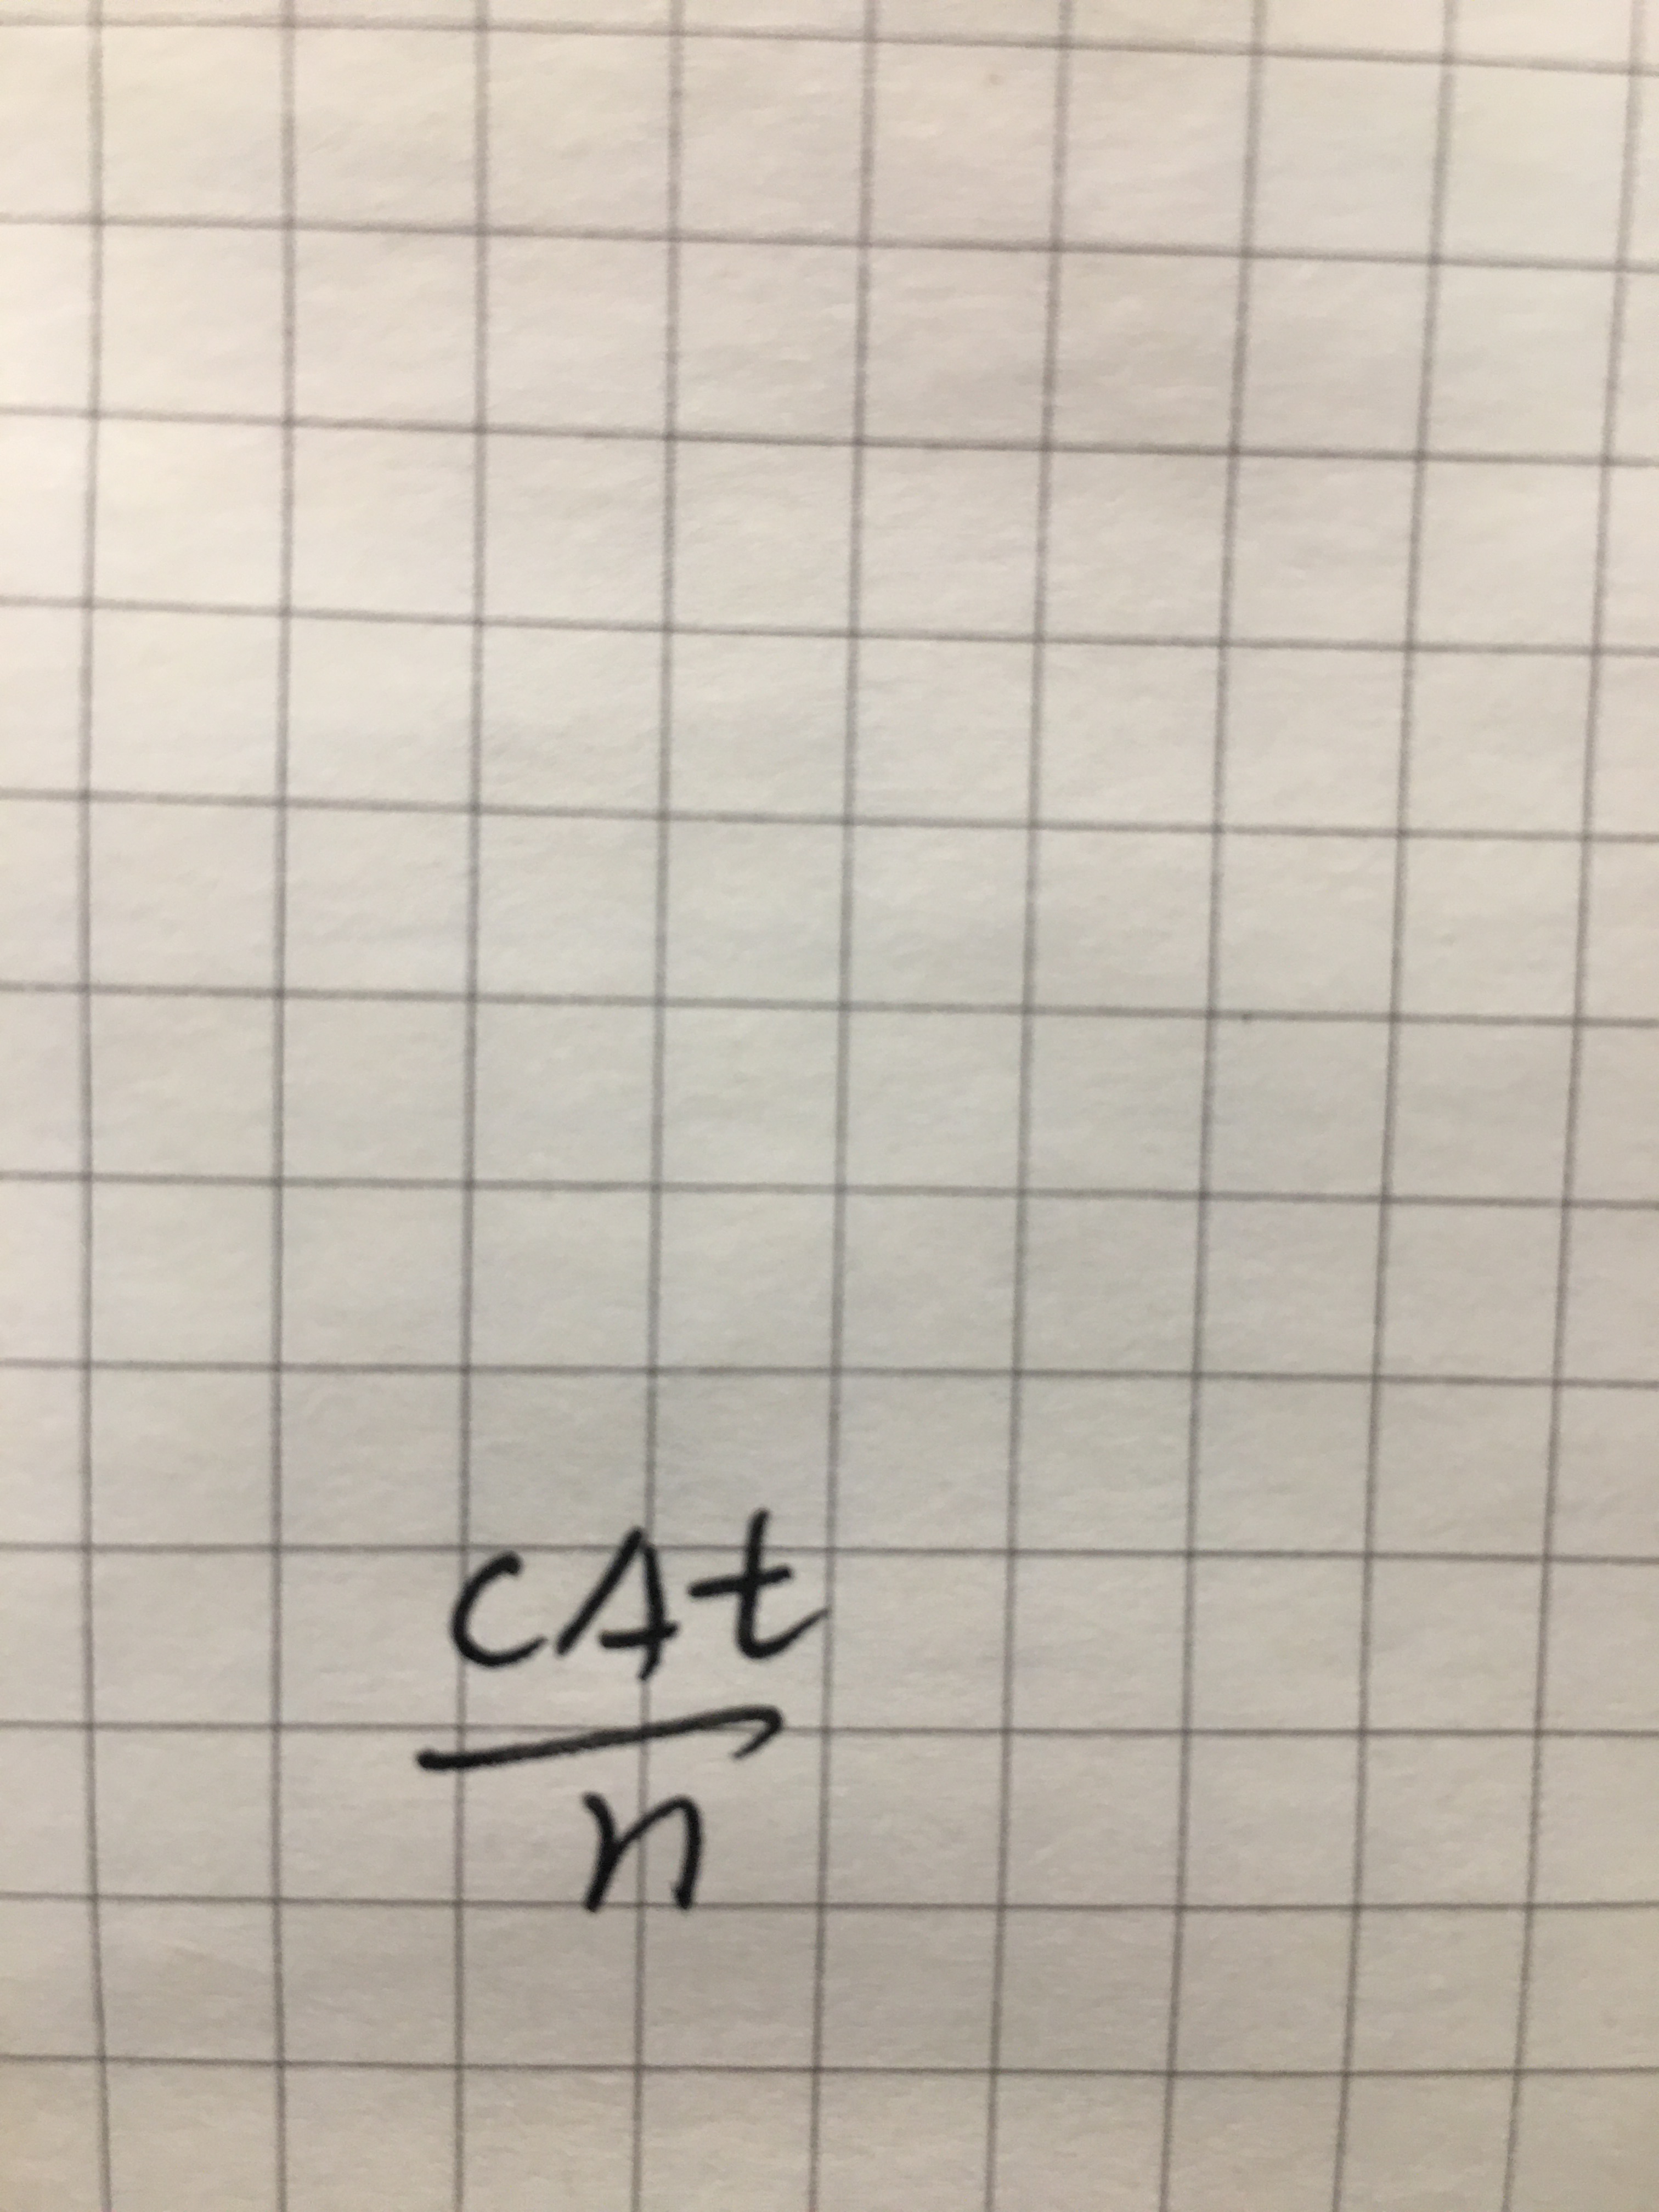 cΔt
n